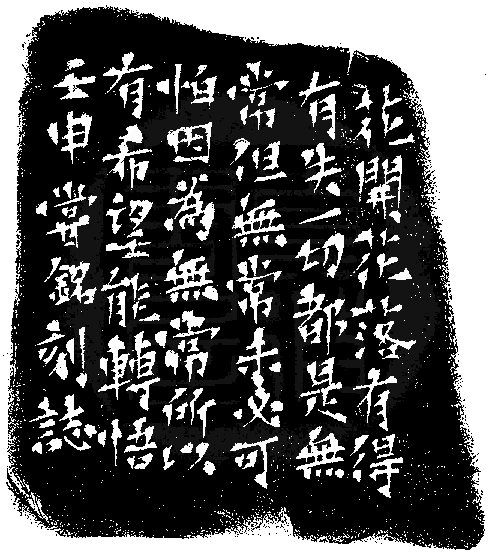 花開花落有得
有失一切都是無
常但無常未必可
怕因為無常所以
有希望能轉悟
壬申嘗銘刻誌